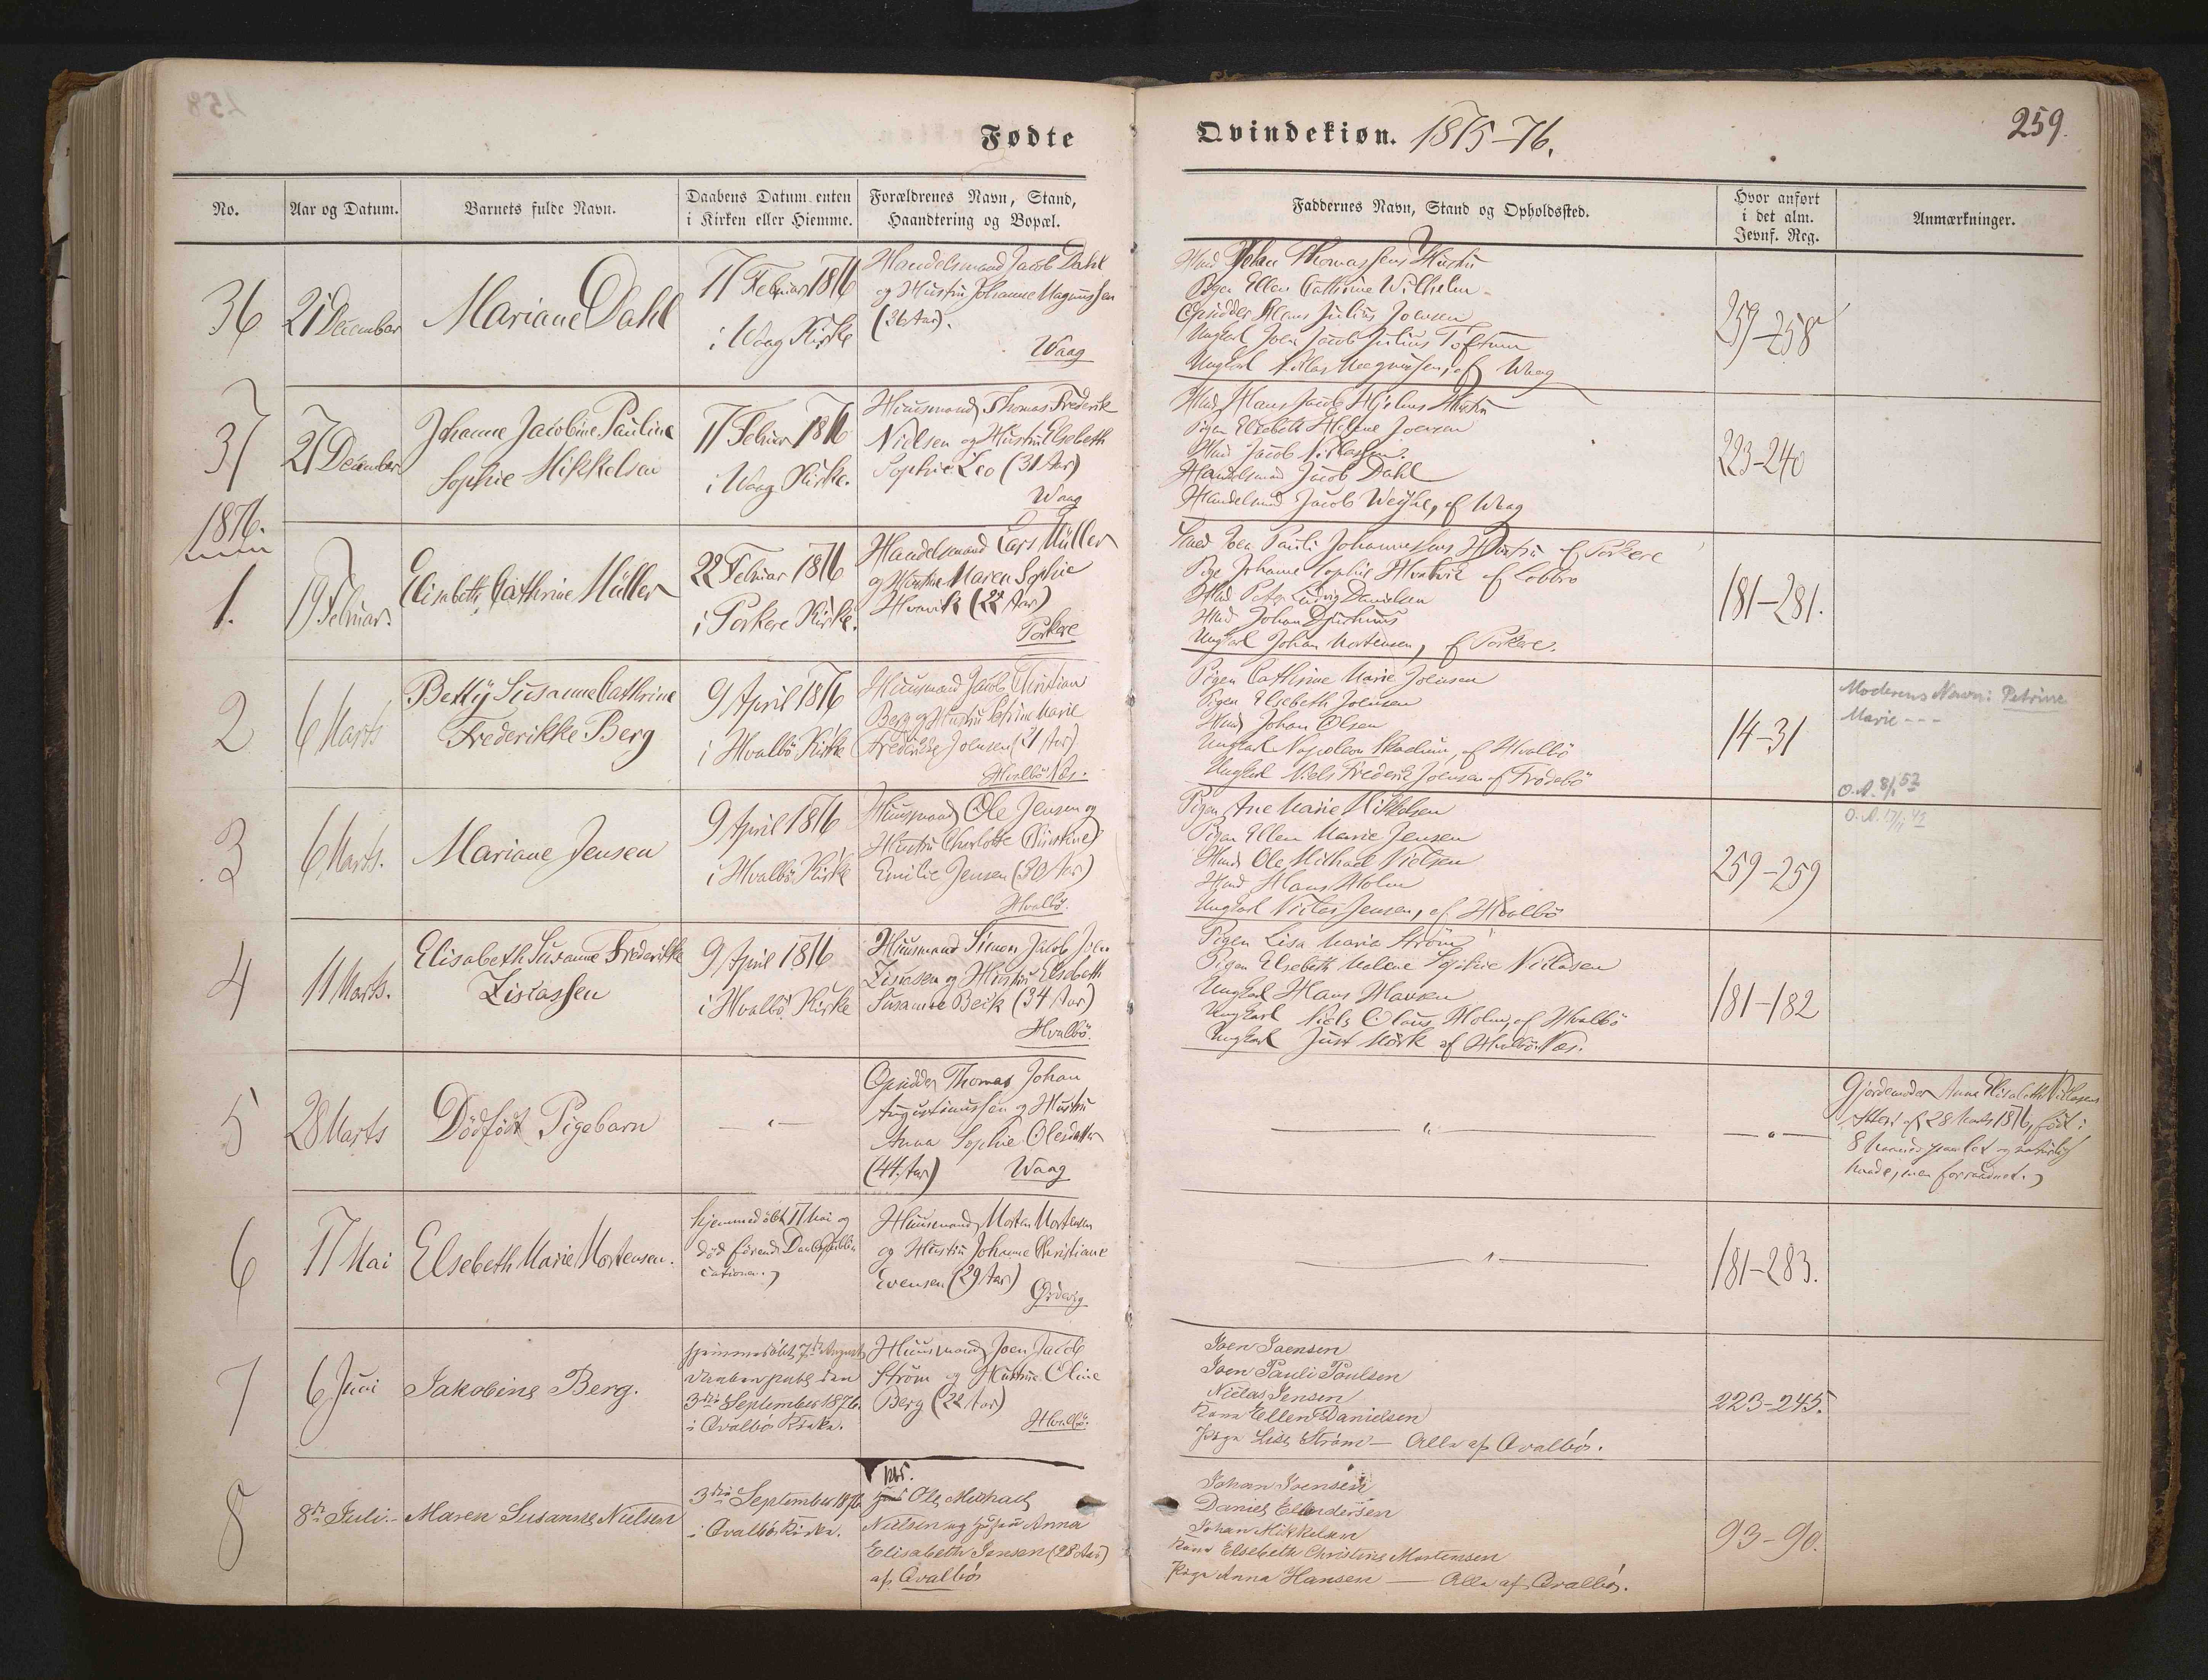 Fødte
Qvindekiøn. 1875-76.
259.
No.
Aar og Datum.
Barnets fulde Navn.
Daabens Datum enten
i Kirken eller Hiemme.
Forældrenes Navn, Stand,
Haandtering og Bopæl.
Faddernes Navn, Stand og Opholdssted.
Hvor anført
i det alm.
Jevnf. Reg.
Anmærkninger.
36
21 December
Mariane Dahl
17 Februar 1876
i Waag Kirke
Handelsmand Jacob Dahl
og Hustru Johanne Magnussen
(36 Aar).
Waag
Hmd Johan Thomassens Hustru
Pigen Ellen Cathrine Wilhelm
Opsidder Hans Julius Joensen
Ungkarl Joen Jacob Julius Toftum
Ungkarl Niklas Magnussen, af Waag
259-258
37
27 December
Johanne Jacobine Pauline
Sophie Mikkelsen
17 Februar 1876
i Waag Kirke.
Huusmand Thomas Frederik
Nielsen og Hustru Elsebeth
Sophie Leo (31 Aar)
Waag
Hmd Hans Jacob Hjelms Hustru
Pigen Elsebeth Helene Joensen
Hmd Jacob Niklassen.
Handelsmand Jacob Dahl
Handelsmd Jacob Weyhe, af Waag
223-240
1876.
1.
19 Februar.
Elisabeth Cathrine Müller
22 Februar 1876
i Porkere Kirke.
Handelsmand Lars Müller
og Hustru Maren Sophie
Hvanvik (22 Aar)
Porkere
Hmd Joen Pauli Johannessens Hustru af Porkere
Pige Johanne Sophie Hvalvik af Lobbro
Hmd Peter Ludvig Danielsen
Hmd Johan Djurhuus
Ungkarl Johan Mortensen, af Porkere.
181-281.
2
6 Marts
Betty Susanne Cathrine
Frederikke Berg
9 April 1876
i Hvalbö Kirke
Huusmand Jacob Christian
Berg og Hustru Petrine Marie
Frederikke Joensen (21 Aar)
Hvalbö Næs.
Pigen Cathrine Marie Joensen
Pigen Elsebeth Joensen
Hmd Johan Olsen
Ungkarl Napoleon, af Hvalbö
Ungkarl Niels Frederik Joensen af Frodebö
14-31
Moderens Navn: Petrine
Marie - - -
O.A. 8/1 52
3
6 Marts.
Mariane Jensen
9 April 1876
i Hvalbö Kirke
Huusmand Ole Jensen og
Hustru Charlotte (Kirstine)
Emilie Jensen (30 Aar)
Hvalbö.
Pigen Ane Marie Mikkelsen
Pigen Ellen Marie Jensen
Hmd Ole Michael Nielsen
Hmd Hans Holm
Ungkarl Niclas Jensen, af Hvalbö
259-259
O.A. 17/11 42
4
11 Marts.
Elisabeth Susanne Frederikke
Ziskassen
9 April 1876
i Hvalbö Kirke
Huusmand Simon Jacob Joen
Ziskasen og Hustru Elsebeth
Susanne Beck (34 Aar)
Hvalbö.
Pigen Lisa Maria Ström
Pigen Elsebeth Malene Sophie Niclasen
Ungkarl Hans Hansen
Ungkarl Niels Claus Holm, af Hvalbö
Ungkarl Just Mörk af Hvalbö Næs.
181-182
5
28 Marts
Dödfödt Pigebarn
- " -
Opsidder Thomas Johan
Augustinussen og Hustru
Anna Sophie Olesdatter
(44 Aar) Waag
- " -
- " -
Gjordemoder Anna Elisabeth Niclasens
Attest af 28 Marts 1876, född i
8 Maaned paa let og naturlig
Maade, men forraadnet.
6
17 Mai
Elsebeth Marie Mortensen.
Hjemmedöbt 17 Mai og
död förend Daabspubli
cationen.
Huusmand Morten Mortensen
og Hustru Johanne Christiane
Evensen (29 Aar)
Ördevig
- " -
181-283.
7
6 Juni
Jakobine Berg.
Hjemmedöbt 7de August
Daaben publ. den
3die September 1876.
i Qvalbø Kirke.
Huusmand Joen Jacob
Ström og Hustru Oline
Berg (22 Aar)
Hvalbö.
Joen Joensen
Joen Pauli Poulsen
Niclas Jensen
Kone Ellen Danielsen
Pige Lise Strøm - Alle af Qvalbø.
223-245.
8
8de Juli.
Maren Susanne Nielsen
3die September 1876
i Qvalbø Kirke.
Ole Michael
Nielsen og Hustru Anna
Elisabeth Jensen (28 Aar)
af Qvalbø
Johan Joensen
Daniel Ellendersen
Johan Mikkelsen
Kone Elsebeth Christine Mortensen
Pige Anna Hansen - Alle af Qvalbø.
93-90.